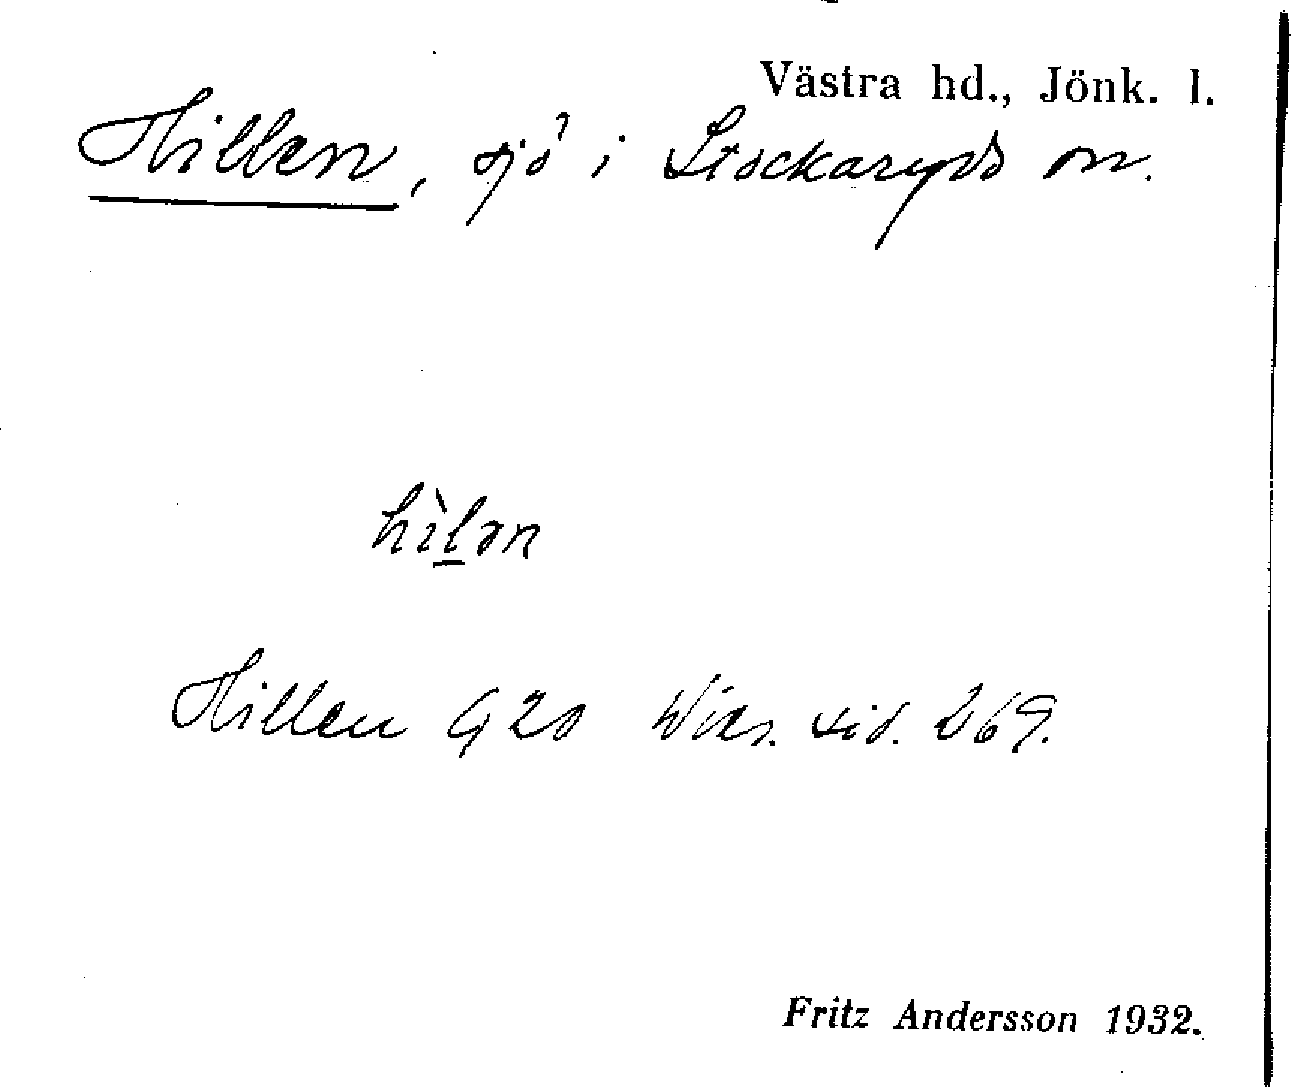 Västra hd., Jönk. l.
Hillen, sjö i Stockaryds sn.
hìlən
Hillen G 20 Wies. sid. 269.
Fritz Andersson 1932.